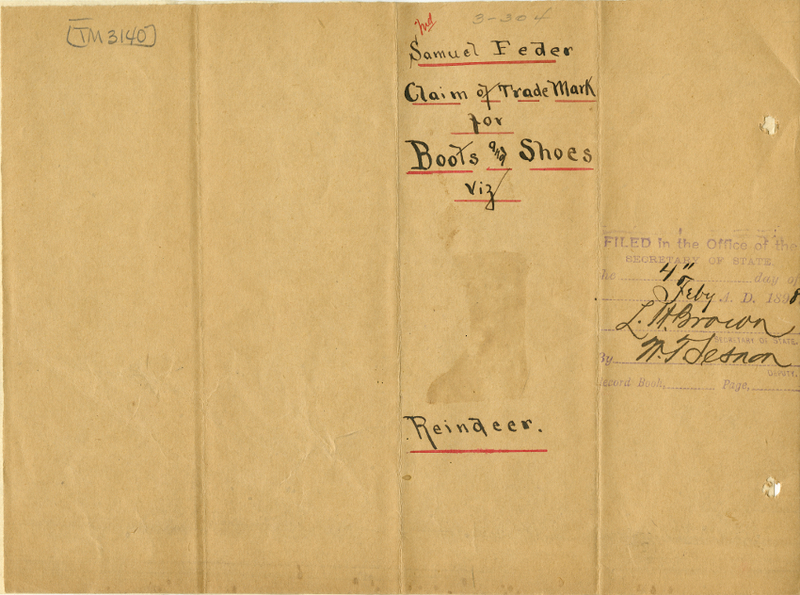 [TM 3140]
3-304
Samuel Feder
Claim of Trade Mark
for
Boots and Shoes
viz
Reindeer.
FILED in the Office of the
SECRETARY OF STATE
the 4" day of
Feby A. D. 1898
L. H. Brown
SECRETARY OF STATE.
By
DEPUTY.
Record Book, Page,